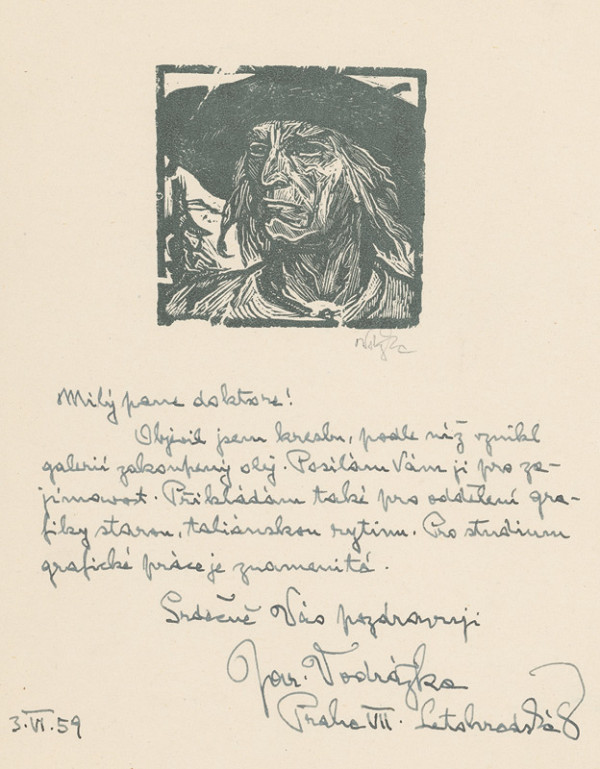 Milý pane doktore!
Objevil jsem kresbu, podle níž vznikl
galerií zakoupený olej. Posílám Vám ji pro za-
jímavost. Přikládám také pro oddělení gra-
fiky starou, taliánskou rytinu. Pro studium
grafické práce je znamenitá.
Srdečně Vás pozdravuji
Jar. Vodrážka
Praha VII. Letohradská
3.VI.59